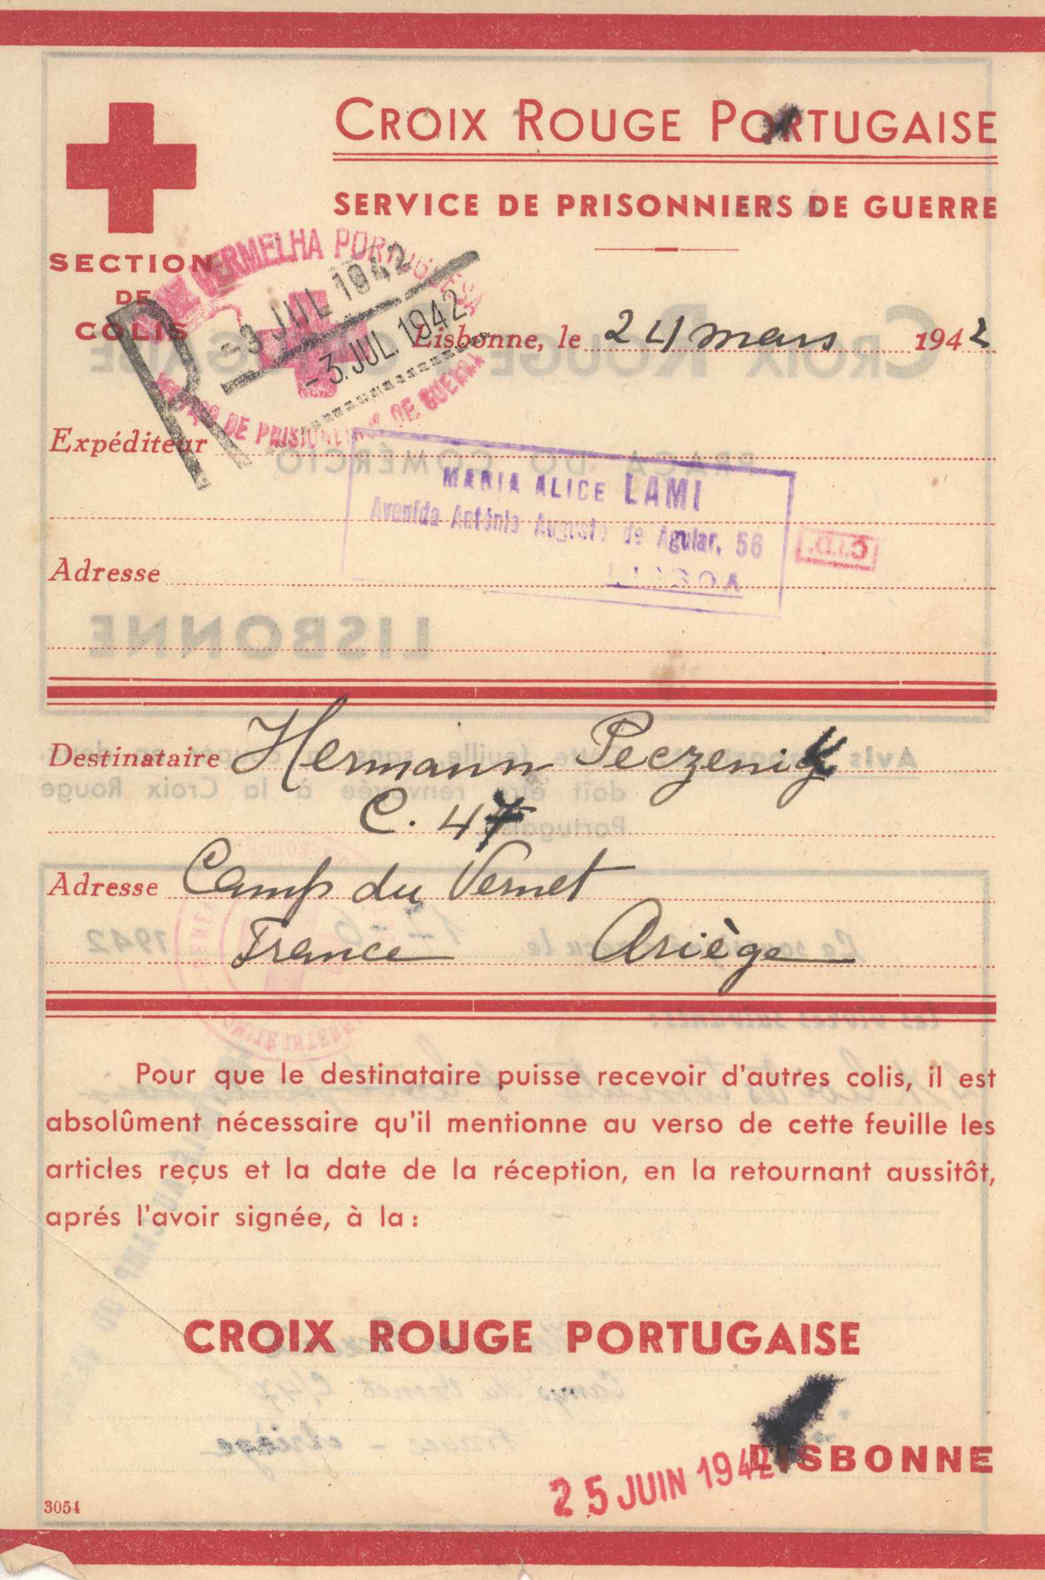 CROIX ROUGE PORTUGAISE
SERVICE DE PRISONNIERS DE GUERRE
SECTION
DE
COLIS
VERMELHA PORTUGUESA
DE PRISIONEIROS DE GUERRA
-3 JUL 1942
-3. JUL. 1942
Lisbonne, le 24 mars 1942
Expéditeur
MARIA ALICE LAMI
Avenida António Augusto de Aguiar, 56
Adresse
LISBOA
C.I.D.
Destinataire Hermann Peczenik
C. 47
Adresse Camp du Vernet
France Ariège
Pour que le destinataire puisse recevoir d'autres colis, il est
absolûment nécessaire qu'il mentionne au verso de cette feuille les
articles reçus et la date de la réception, en la retournant aussitôt,
aprés l'avoir signée, à la:
CROIX ROUGE PORTUGAISE
LISBONNE
25 JUIN 1942
3054